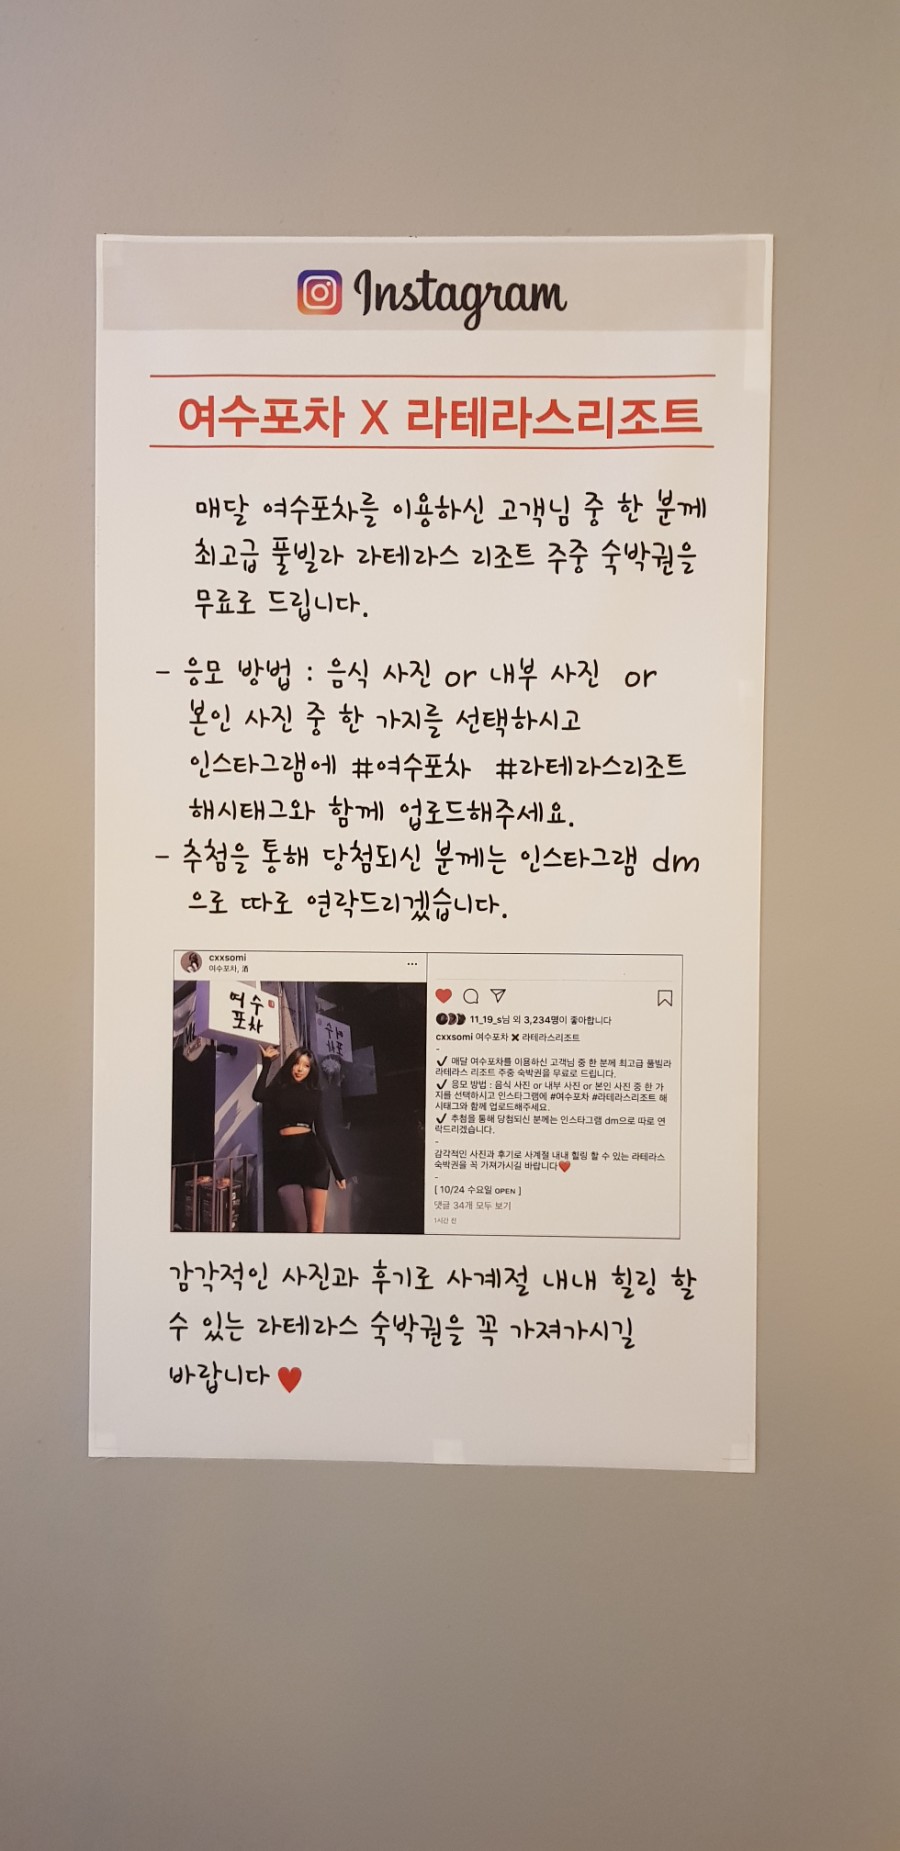 Instagram
여수포차 X 라테라스리조트
매달 여수포차를 이용하신 고객님 중 한 분께
최고급 풀빌라 라테라스 리조트 주중 숙박권을
무료로 드립니다.
- 응모 방법 : 음식 사진 or 내부 사진 or
본인 사진 중 한 가지를 선택하시고
인스타그램에 #여수포차 #라테라스리조트
해시태그와 함께 업로드해주세요.
- 추첨을 통해 당첨되신 분께는 인스타그램 dm
으로 따로 연락드리겠습니다.
cxxsomi
여수포차, 酒
여수
포차
여수
포차
11_19_s님 외 3,234명이 좋아합니다
cxxsomi 여수포차 ✖ 라테라스리조트
-
✓ 매달 여수포차를 이용하신 고객님 중 한 분께 최고급 풀빌라
라테라스 리조트 주중 숙박권을 무료로 드립니다.
✓ 응모 방법 : 음식 사진 or 내부 사진 or 본인 사진 중 한 가
지를 선택하시고 인스타그램에 #여수포차 #라테라스리조트 해
시태그와 함께 업로드해주세요.
✓ 추첨을 통해 당첨되신 분께는 인스타그램 dm으로 따로 연
락드리겠습니다.
-
감각적인 사진과 후기로 사계절 내내 힐링 할 수 있는 라테라스
숙박권을 꼭 가져가시길 바랍니다❤
-
[ 10/24 수요일 OPEN ]
댓글 34개 모두 보기
1시간 전
감각적인 사진과 후기로 사계절 내내 힐링 할
수 있는 라테라스 숙박권을 꼭 가져가시길
바랍니다 ♥